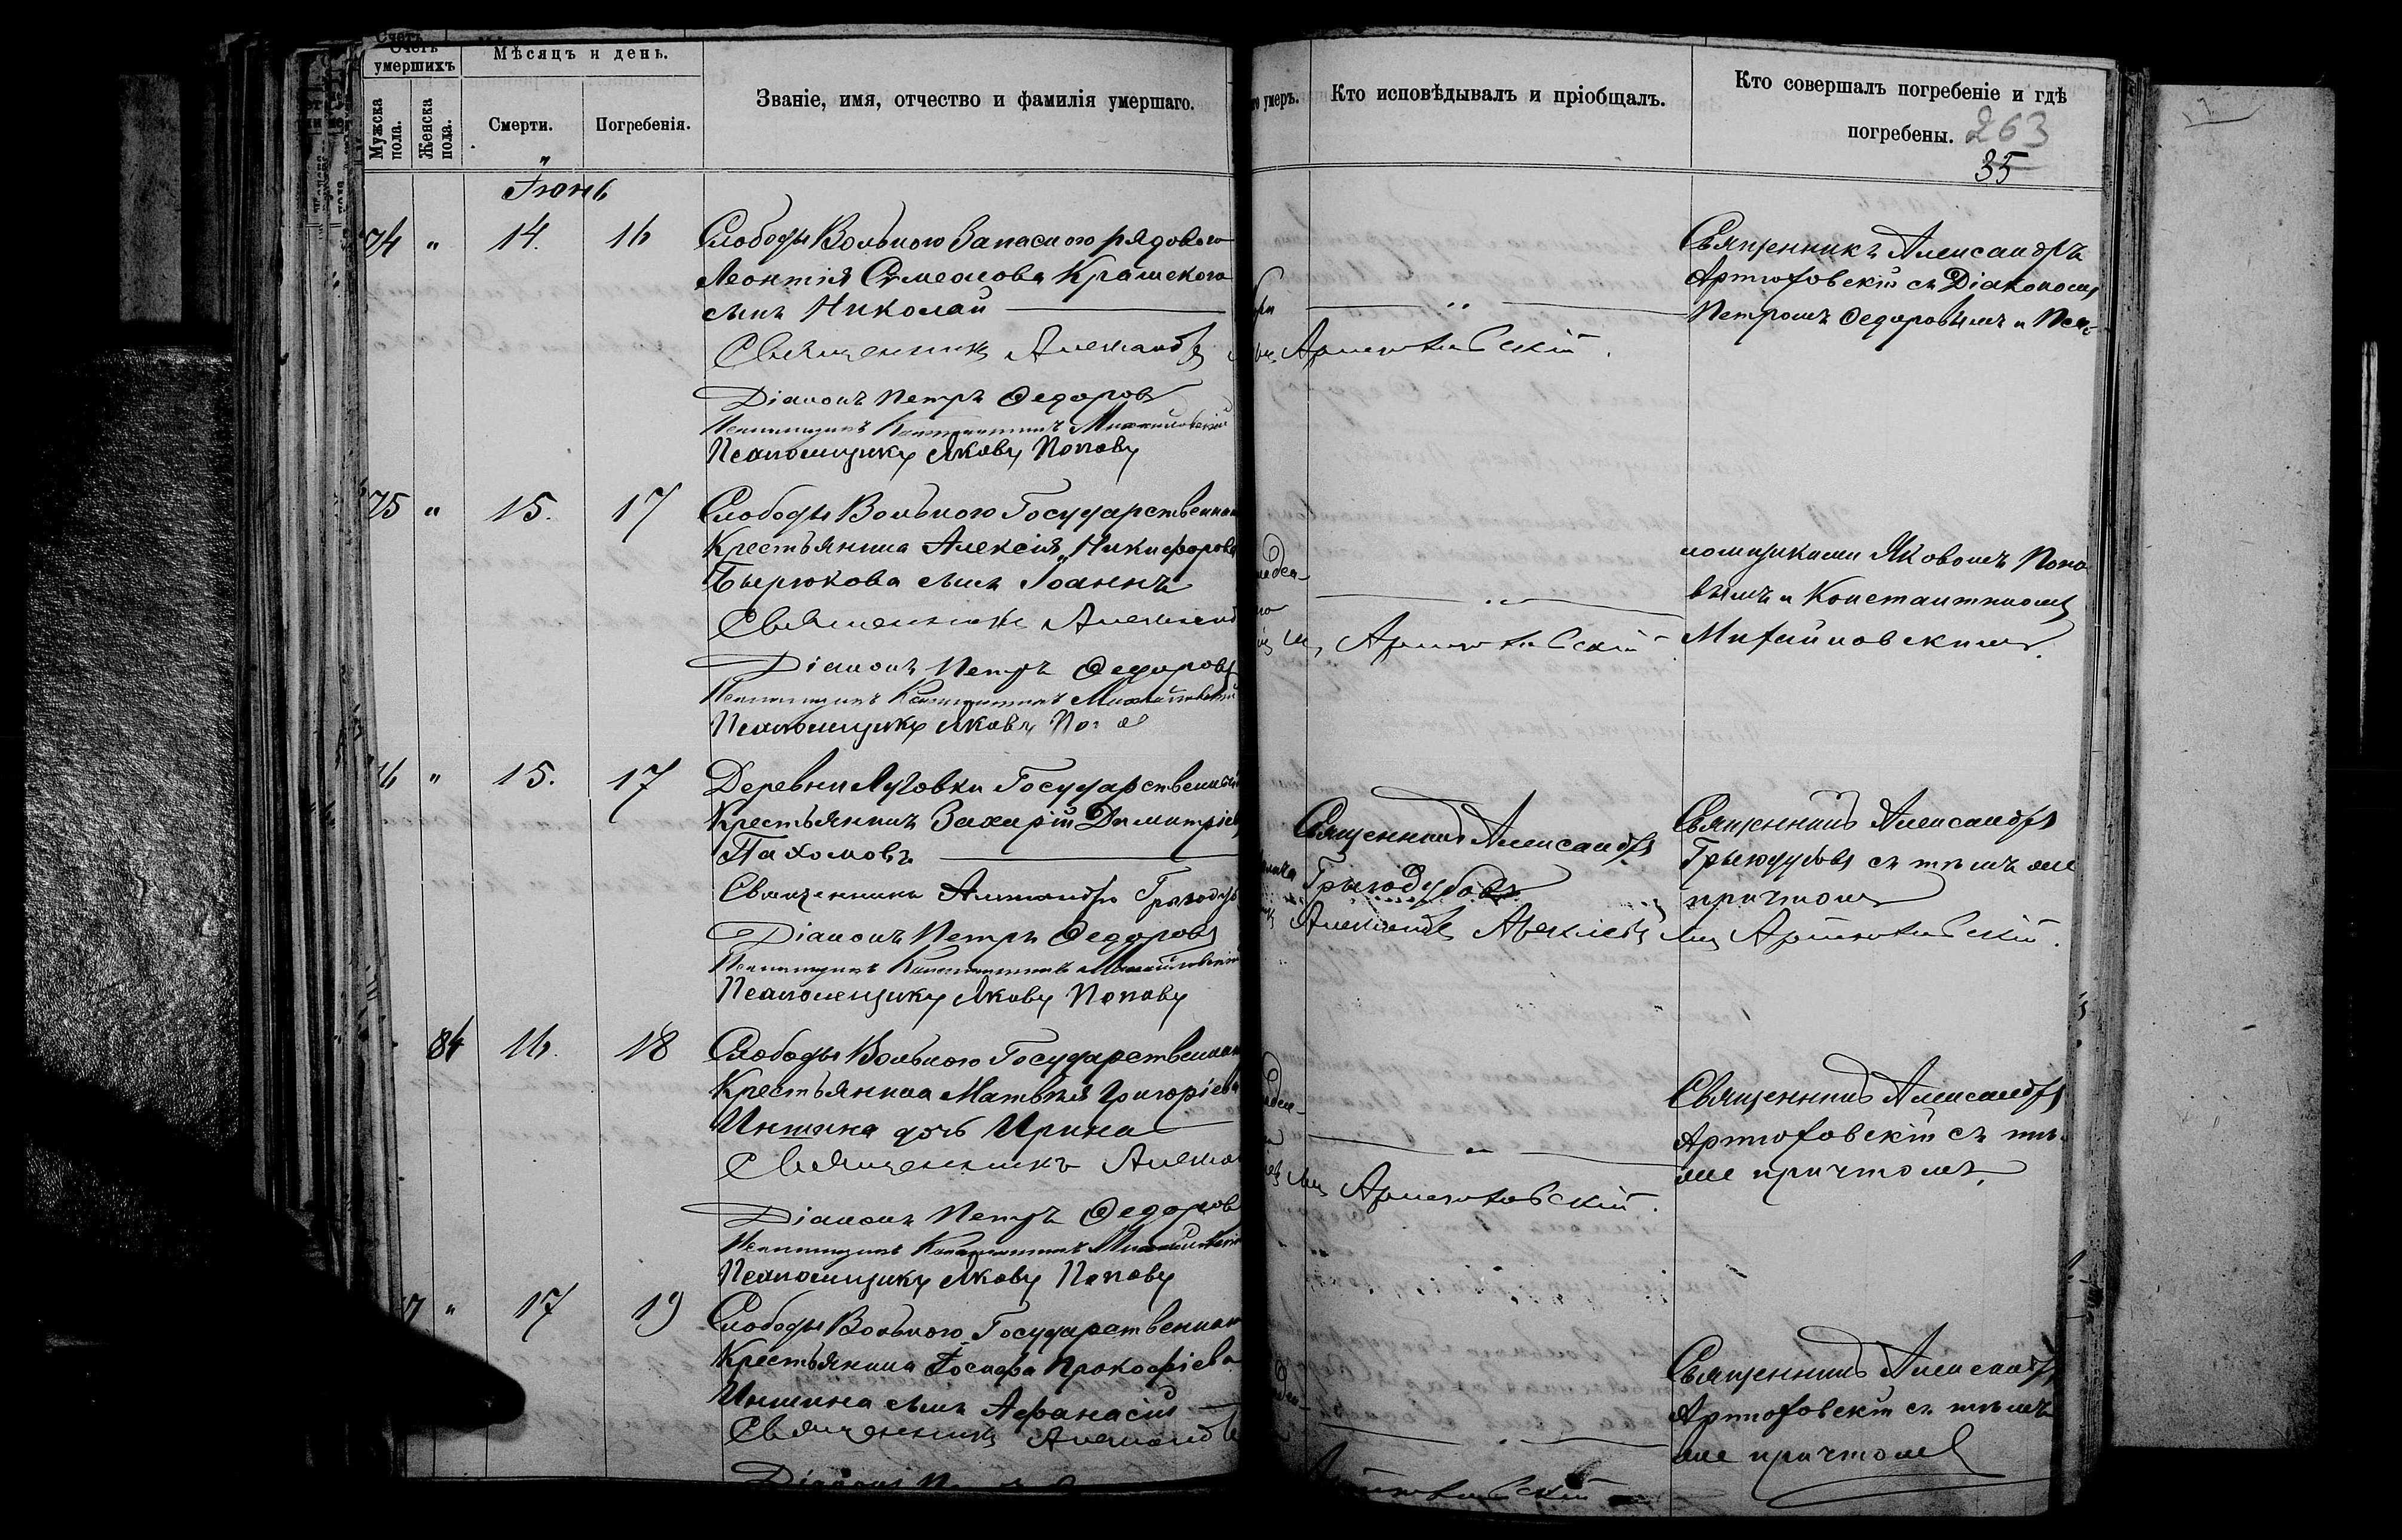 Счетъ умершихъ
Мѣсяцъ и день.
Мужска пола.
Женска пола.
Смерти.
Погребенія.
Званіе, имя, отчество и фамилія умершаго.
умеръ.
Кто исповѣдывалъ и пріобщалъ.
Кто совершалъ погребеніе и гдѣ
погребены. 263
35
Іюнь
74 " 14. 16
Слободы Вольного Запасного рядового
Леонтія Симеонова Крамского
сынъ Николай
Священникъ Александръ Артюховскій.
Діаконъ Петръ Федоровъ
Псаломщикъ Константинъ Михайловскій
Псаломщикъ Яковъ Поповъ
Священникъ Александръ
Артюховскій съ Діакономъ
Петромъ Федоровымъ и Пса-
75 " 15. 17
Слободы Вольного Государственнаго
Крестьянина Алексія Никифорова
Бырюкова сынъ Іоаннъ
Священникъ Александръ Артюховскій
Діаконъ Петръ Федоровъ
Псаломщикъ Константинъ Михайловскій
Псаломщикъ Яковъ
ломщиками Яковомъ Попо
вымъ и Константиномъ
Михайловскимъ.
" 15. 17
Деревни Луговки Государственный
Крестьянинъ Захарій Димитріевъ
Пахомовъ
Священникъ Александръ
Діаконъ Петръ Федоровъ
Псаломщикъ Константинъ Михайловскій
Псаломщикъ Яковъ Поповъ
Священникъ Александръ
Грызодубовъ
Александръ Артюховскій.
Священникъ Александръ
Грызодубовъ съ тѣмъ же
причтомъ
84 16. 18
Слободы Вольного Государственнаго
Крестьянина Матвѣя Григоріева
Иншина дочь Ирина
Священникъ Артюховскій.
Діаконъ Петръ Федоровъ
Псаломщикъ Константинъ Михайловскій
Псаломщикъ Яковъ Поповъ
Священникъ Александръ
Артюховскій съ тѣмъ
же причтомъ
" 17 19
Слободы Вольного Государственнаго
Крестьянина Іосифа Прокофіева
Иншина сынъ Афанасій
Священникъ Александръ
Діаконъ
Священникъ Александръ
Артюховскій съ тѣмъ
же причтомъ